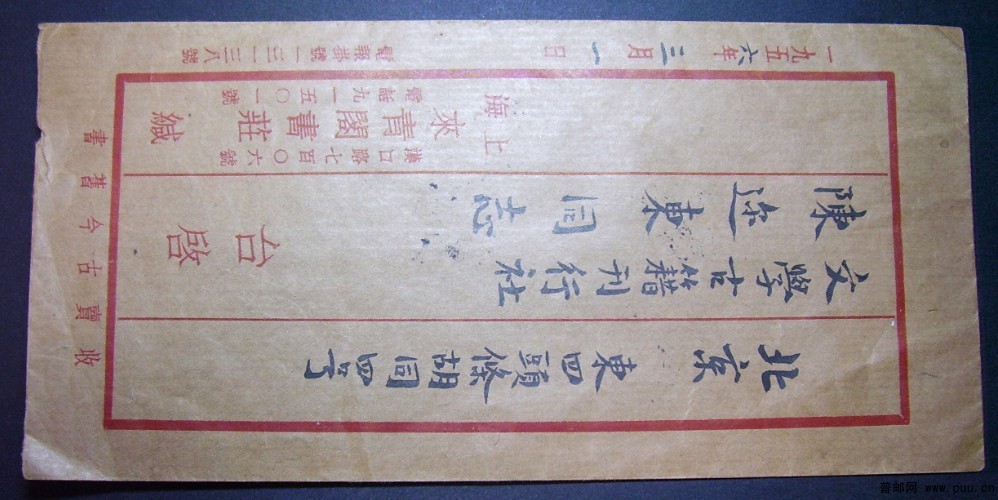 北京東四頭條胡同四号
文學古籍刊行社
陳迩東同志
台啓
漢口路七百〇六號
上海來青閣書莊緘
電話九一五〇一號
一九五六年三月一日
電報掛號一三一三八號
收賣古今舊書
普邮网 www.puu.cn